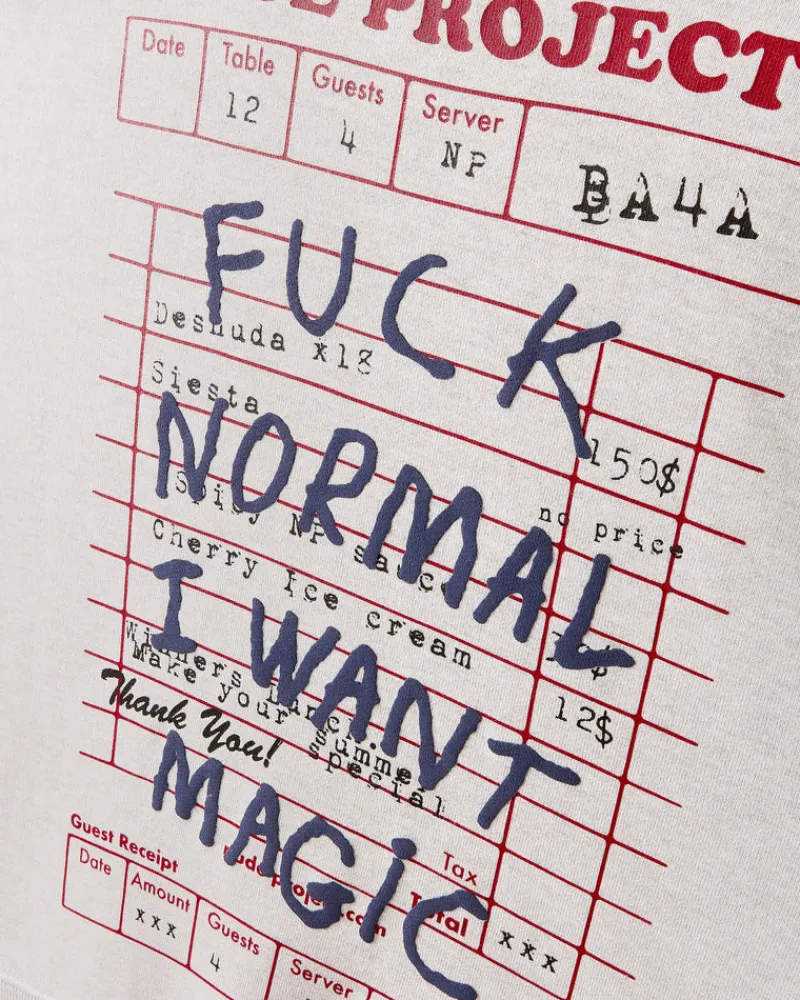 PROJECT
Date Table Guests Server
12 4 NP BA4A
FUCK
Desnuda x18
Siesta 150$
NORMAL
no price
Spisy NP sauce
Cherry Ice cream
I WANT 12$
Winners Lunch.
Make your summer
special
Thank You!
MAGIC
Tax
Guest Receipt nudeproject.com Total xxx
Date Amount Guests Server
xxx 4